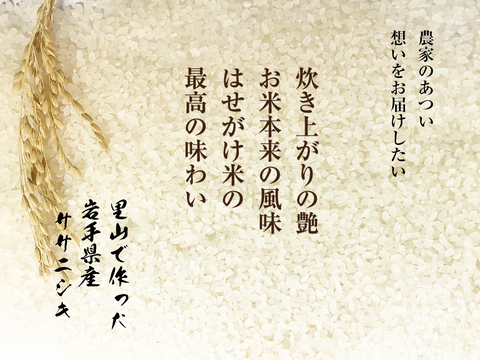 農家のあつい
想いをお届けしたい
炊き上がりの艶
お米本来の風味
はせがけ米の
最高の味わい
里山で作った
岩手県産
ササニシキ